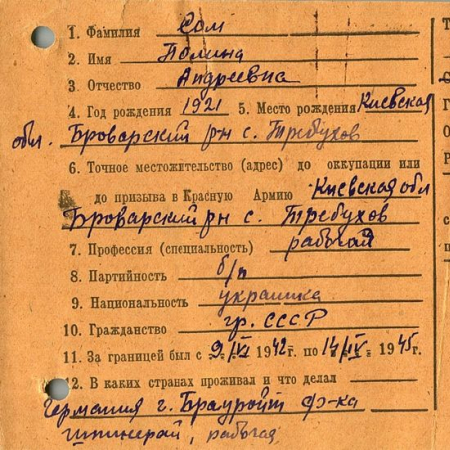 1. Фамилия Сом
2. Имя Полина
3. Отчество Андреевна
4. Год рождения 1921 5. Место рождения Киевская
обл. Броварский р-н с. Требухов
6. Точное местожительство (адрес) до оккупации или
до призыва в Красную Армию Киевская обл
Броварский р-н с. Требухов
7. Профессия (специальность) рабочая
8. Партийность б/п
9. Национальность украинка
10. Гражданство гр. СССР
11. За границей был с 9/VI 1942 г. по 14/IV 1945 г.
12. В каких странах проживал и что делал
Германия г. Брауройт ф-ка
Шпинерай, рабочая